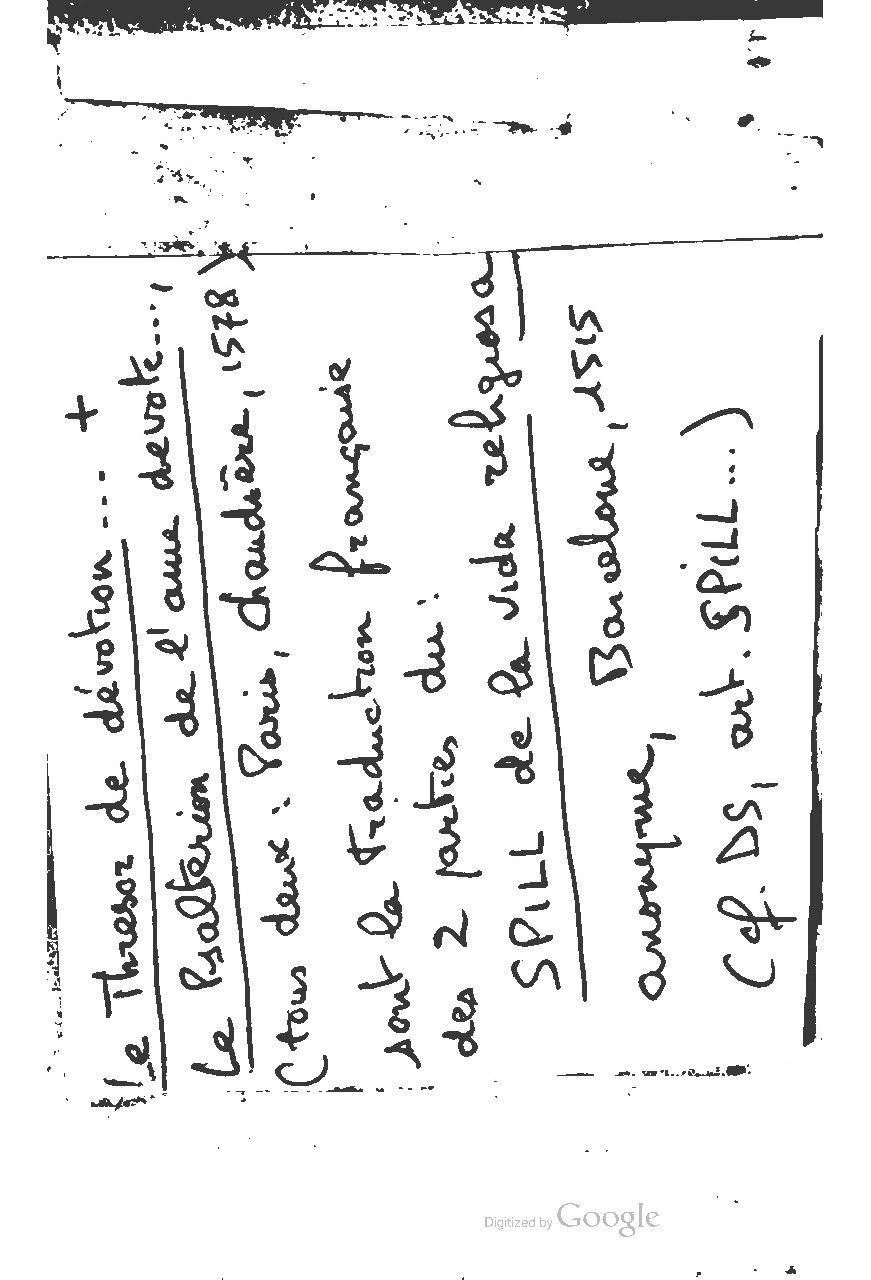 Le Thresor de dévotion... +
Le Psalterion de l'ame devote...,
(tous deux : Paris, Chaudière, 1578)
sont la traduction française
des 2 parties du :
SPILL de la vida religiosa
anonyme, Barcelone, 1515
(cf. DS, art. SPILL...)
Digitized by Google